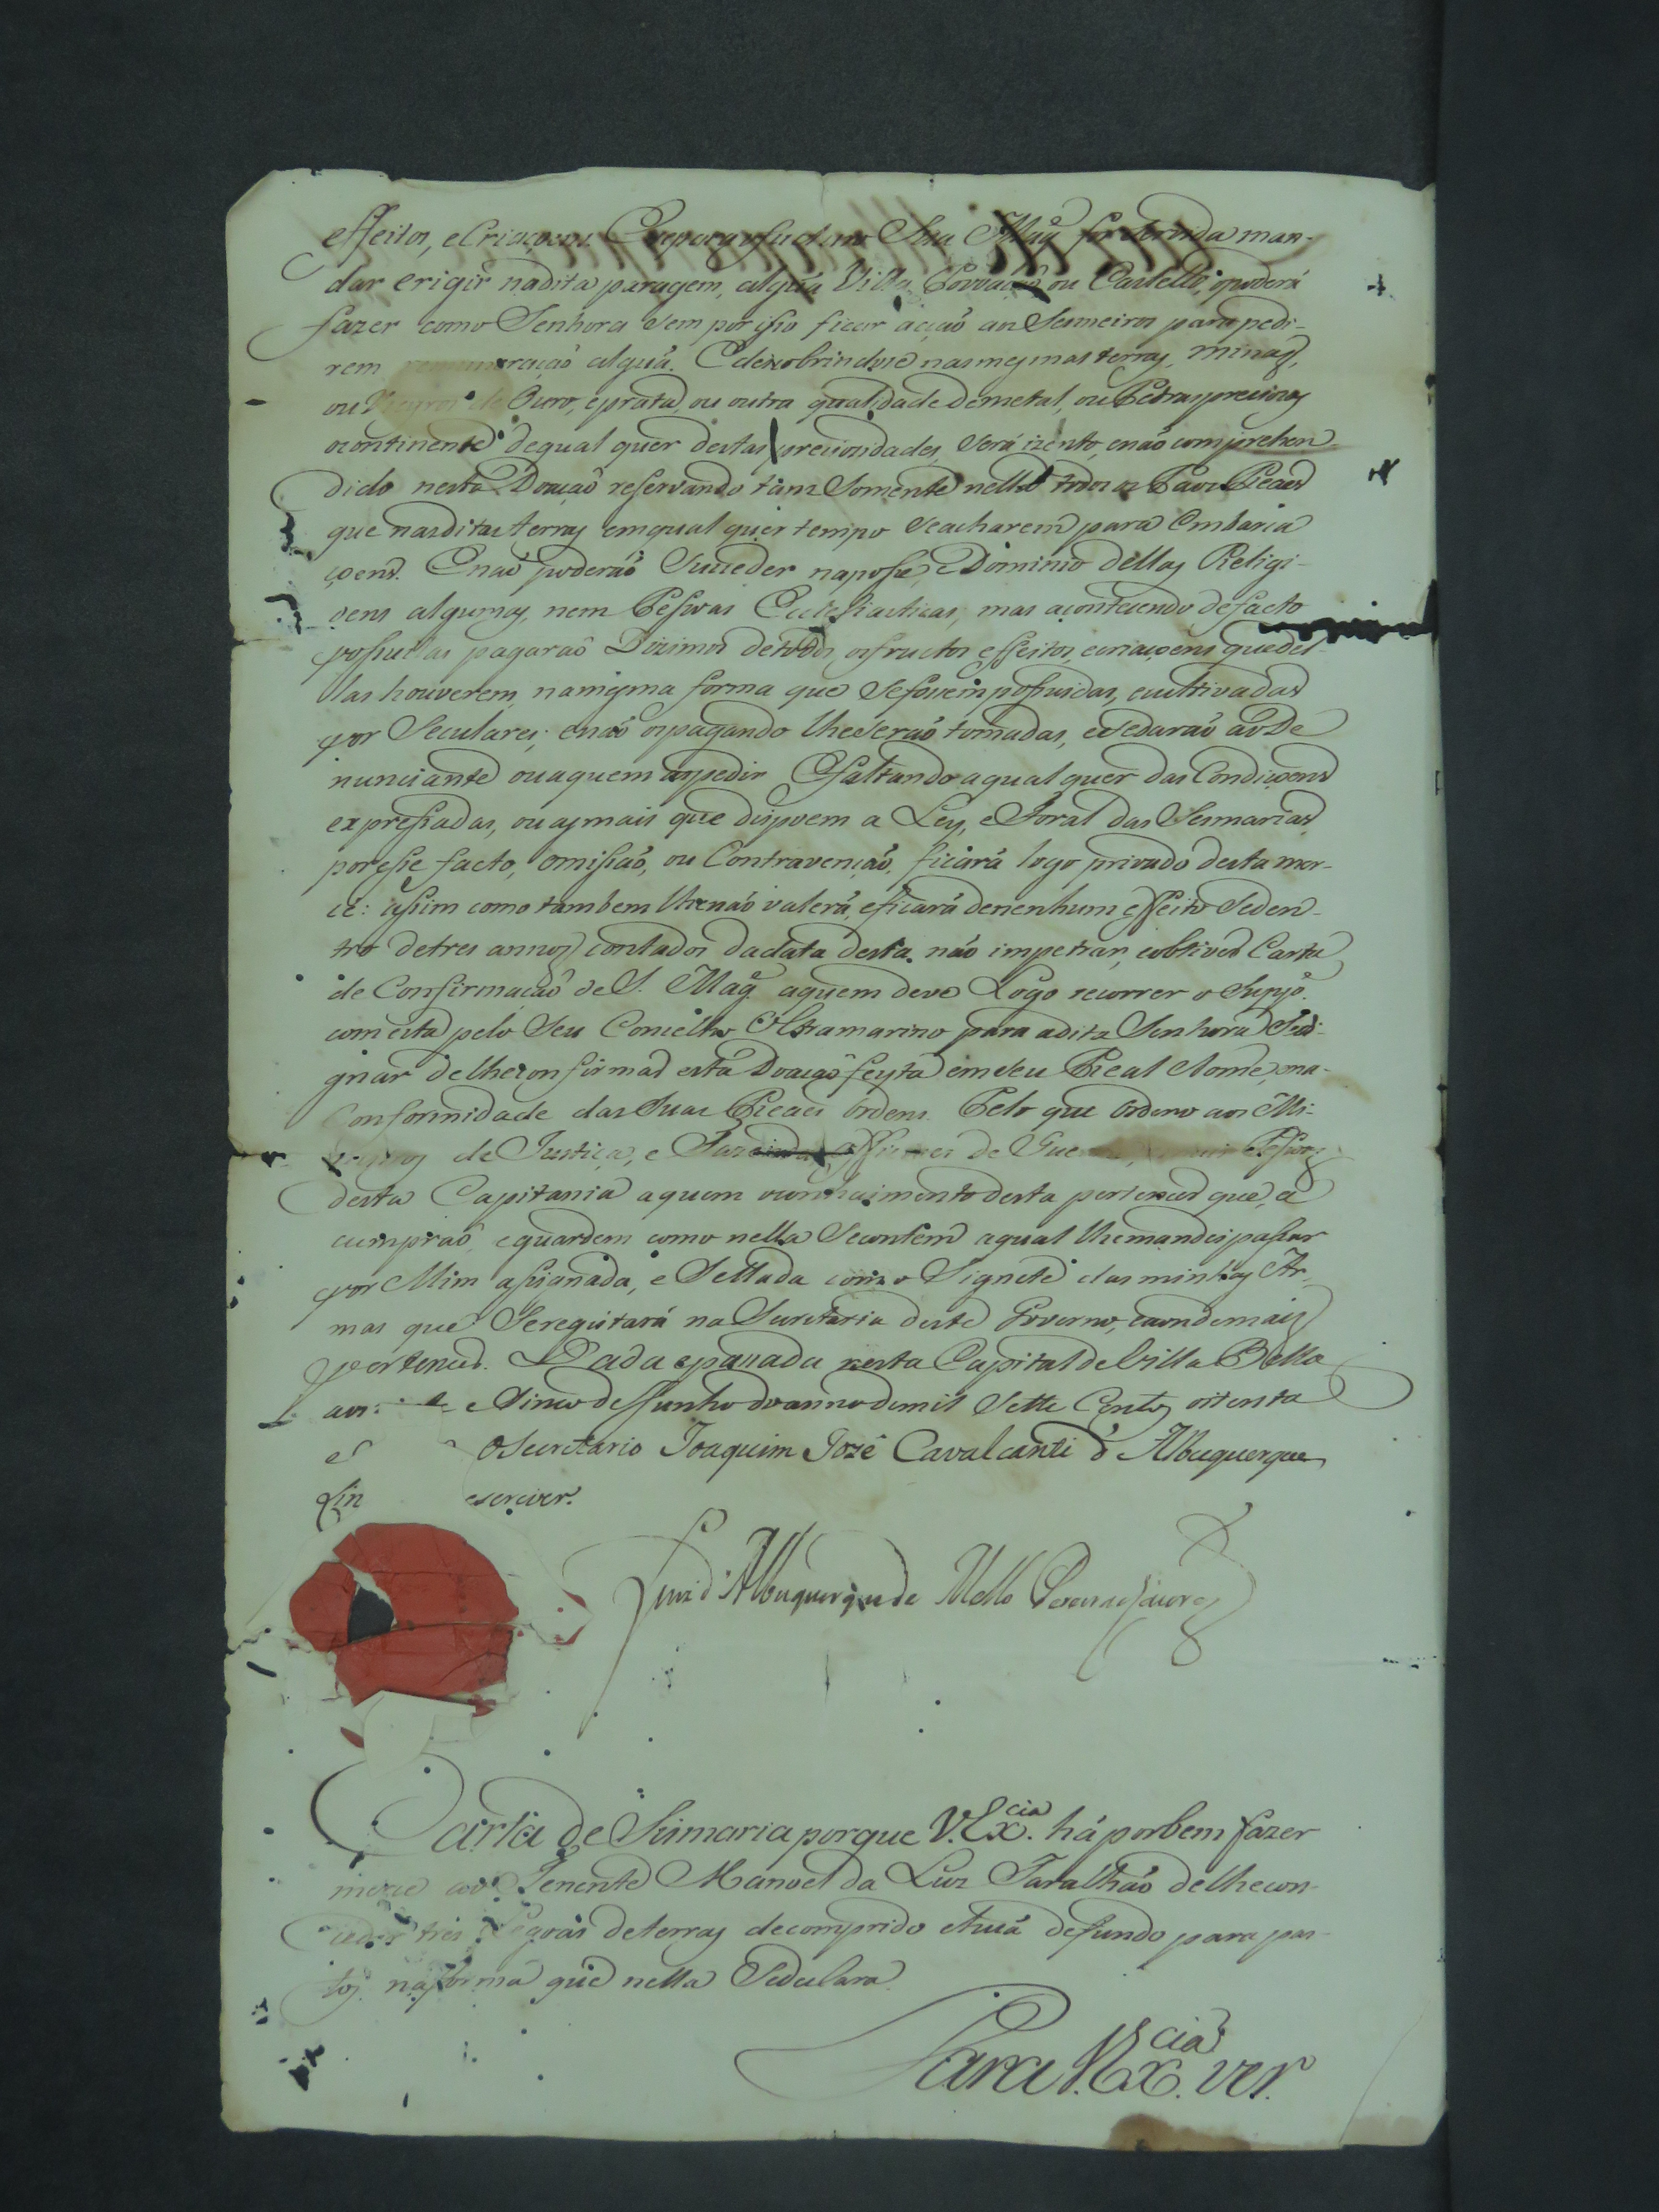 effeitos, e Criaçoens. E se por algum tempo Sua Mag.e for servida man-
dar erigir nadita paragem, algũa Villa, Povoação ou Castello, o poderá
fazer como Senhora sem por isso ficar acção aos Sesmeiros para pedi-
rem remuneração algũa. E descobrindose nas mesmas terras, minas,
ou Veyros de Ouro, e prata, ou outra qualidade demetal, ou Pedras preciozas
o continente dequal quer destas preciosidades, será izento, e não comprehen-
dido nesta Doação reservando tam Somente nella todos os Paos Reaes
que nas ditas terras em qual quer tempo se acharem para Embarca
çoens. E não poderão Succeder na posse, e Dominio dellas Religi-
oens algumas, nem Pessoas Ecclesiasticas, mas acontecendo defacto
possuilas pagarão Dizimos detodos os fructos effeitos, e criaçoens que del-
las houverem, namesma forma que se fossem possuidas, e cultivadas
por Seculares; e não os pagando lhe serão tomadas, e se darão ao De
nunciante ou a quem as pedir. E faltando a qual quer das Condiçoens
expressadas, ou as mais que dispoem a Ley, e Foral das Sesmarias,
por esse facto, omissão, ou Contravenção, ficará logo privado desta mer-
cê: assim como tambem lhe não valerá, e ficará de nenhum effeito Se den-
tro detres annos contados da data desta, não impetrar, e obtiver Carta
de Confirmação de S. Mag.e aquem deve Logo recorrer o Supp.o
com esta pelo Seu Concelho Ultramarino para adita Senhora Se di-
gnar delhe confirmar esta Doação feyta em seu Real Nome, na-
Conformidade das Suas Reaes Ordens. Pelo que Ordeno aos Mi-
nistros de Justiça, e Fazenda, Officiaes de Guerra, e mais Pessoas
desta Capitania aquem o conhecimento desta pertencer que, a
cumprão, e guardem como nella Se contem a qual lhe mandei passar
por Mim assignada, e Sellada com o Signete das minhas Ar-
mas que Se registará na Secretaria deste Governo, e aonde mais
pertencer. Dada e passada nesta Capital de Villa Bella
aos e Sinco de Junho do anno de mil Sette Centos oitenta
e O Secretario Joaquim Jozé Cavalcanti d'Albuquerque
Lin escrever.
Luiz d'Albuquerque de Mello Pereira e Caceres
Carta de Sismaria porque V. Ex.cia há por bem fazer
merce ao Tenente Manoel da Luz Taralhão delhe con-
ceder tres Legoas de terras decomprido e hũa defundo para pas-
tos, na forma que nella Sedeclara.
Para V. Ex.cia ver.